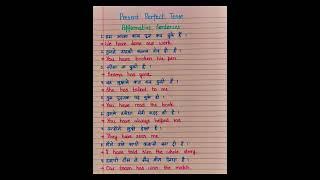 Present Perfect Tense
Affirmative Sentences
हम अपना काम पूरा कर चुके हैं।
We have done our work.
तुमने उसकी कलम तोड़ दी है।
You have broken his pen.
सीता जा चुकी है।
Seema has gone.
वह मुझसे बात कर चुकी है।
She has talked to me.
तुम पुस्तक पढ़ चुके हो।
You have read the book.
तुमने हमेशा मेरी मदद की है।
You have always helped me.
उन्होंने मुझे देखा है।
They have seen me.
मैंने उसे सारी कहानी बता दी है।
I have told him the whole story.
हमारी टीम ने मैच जीत लिया है।
Our team has won the match.